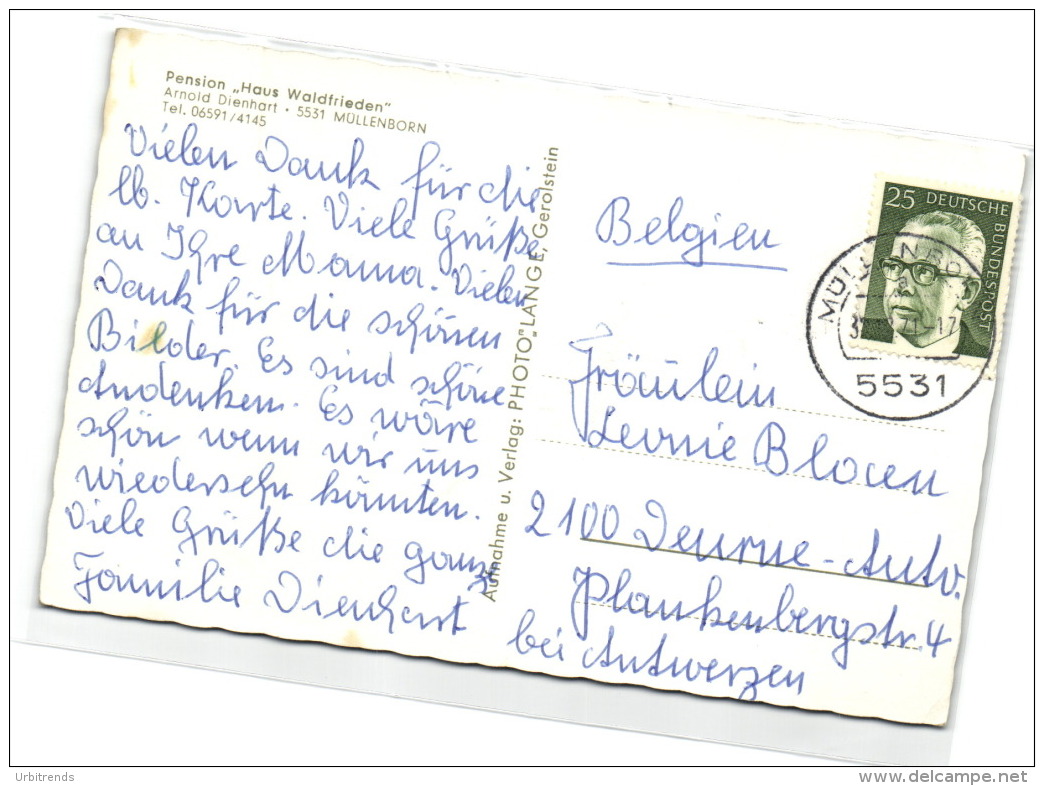 Pension „Haus Waldfrieden"
Arnold Dienhart · 5531 MÜLLENBORN
Tel. 06591/4145
Vielen Dank für die
lb. Karte. Viele Grüße
an Ihre Mama. Vielen
Dank für die schönen
Bilder. Es sind schöne
Andenken. Es wäre
schön wenn wir uns
wiedersehn könnten.
Viele Grüße die ganze
Familie Dienhart
Aufnahme u. Verlag: PHOTO „LANGE", Gerolstein
25 DEUTSCHE
BUNDESPOST
MÜLLENBORN
71-17
5531
Belgien
Fräulein
Leonie Blocen
2100 Deurne-Antw.
Plankenbergstr. 4
bei Antwerzen
Urbitrends
www.delcampe.net